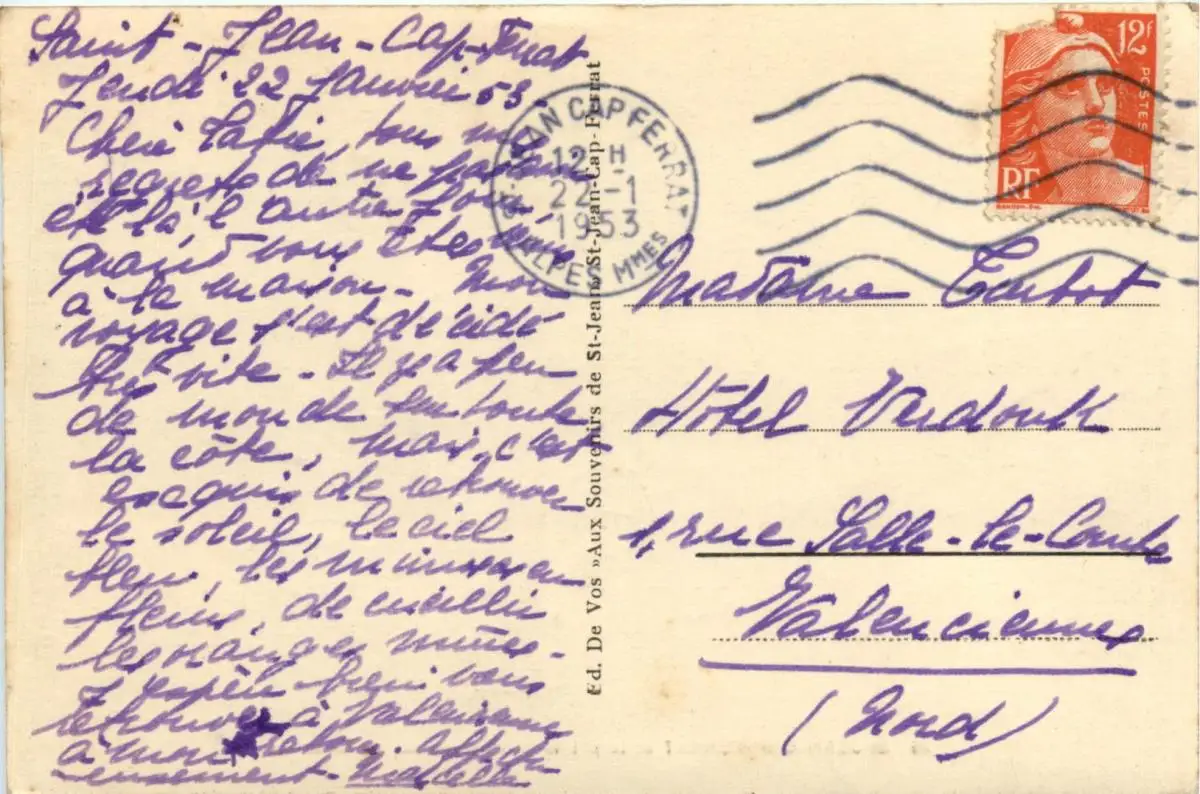 Saint-Jean-Cap-Ferrat
Jeudi 22 Janvier 53.
Chère Tatie, tous mes
regrets de ne pas avoir
été là, l'autre jour,
quand vous êtes venue
à la maison. Mon
voyage s'est décidé
très vite. Il y a peu
de monde sur toute
la côte, mais c'est
exquis de retrouver
le soleil, le ciel
bleu, les mimosas en
fleurs, de cueillir
les oranges mûres.
J'espère bien vous
retrouver à Valenciennes
à mon retour. Affectu-
eusement. Marcelle
Ed. De Vos »Aux Souvenirs de St-Jean« St-Jean-Cap-Ferrat
ST-JEAN CAP FERRAT
12 H
22-1
1953
ALPES MMES
12F
POSTES
RF
Madame
Hôtel
1, rue Salle-le-Comte
Valenciennes
(Nord)